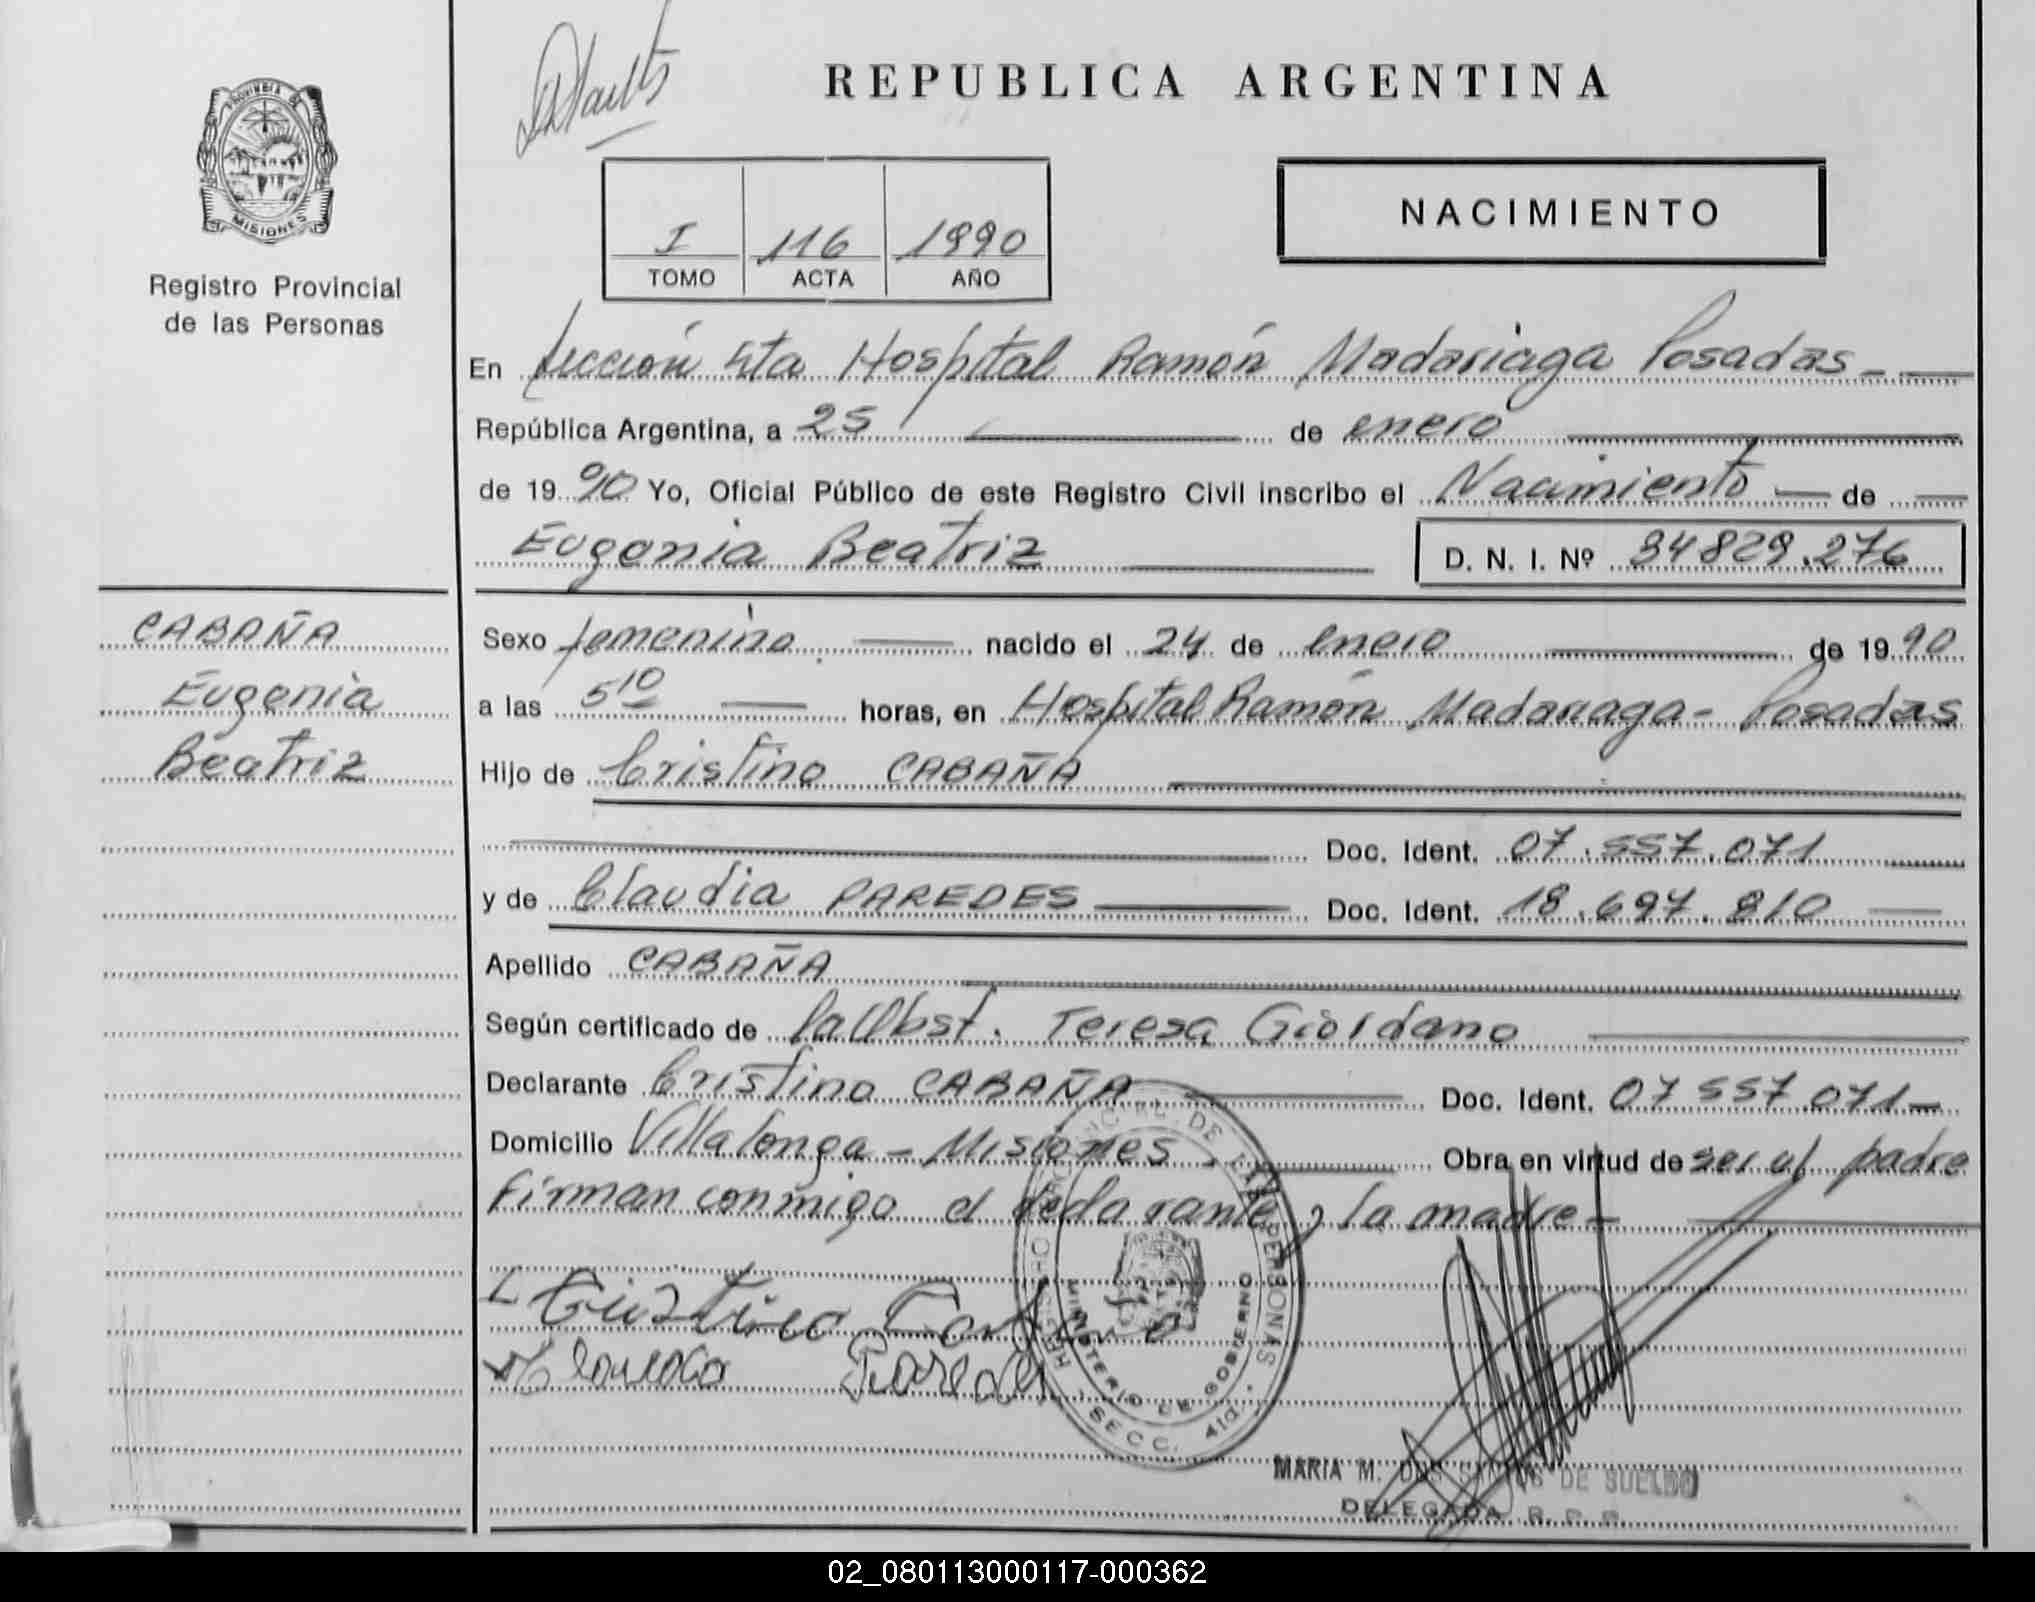 REPUBLICA ARGENTINA
PROVINCIA DE
MISIONES
Registro Provincial
de las Personas
I 116 1990
TOMO ACTA AÑO
NACIMIENTO
En Sección 4ta Hospital Ramón Madariaga Posadas
República Argentina, a 25 de enero
de 1990 Yo, Oficial Público de este Registro Civil inscribo el Nacimiento de
Eugenia Beatriz D. N. I. Nº 34829.276
CABAÑA
Eugenia
Beatriz
Sexo femenino nacido el 24 de enero de 1990
a las 5 10 horas, en Hospital Ramón Madariaga - Posadas
Hijo de Cristino CABAÑA
Doc. Ident. 07.557.071
y de Claudia PAREDES Doc. Ident. 18.697.810
Apellido CABAÑA
Según certificado de la Obst. Teresa Giordano
Declarante Cristino CABAÑA Doc. Ident. 07 557 071-
Domicilio Villalonga - Misiones. Obra en virtud de ser el padre
Firman conmigo el declarante y la madre-
Cristino
Paredes
DE LAS PERSONAS
MINISTERIO DE GOBIERNO
SECC. 4ta.
MARIA M. DOS SANTOS DE SUELDO
DELEGADA R. P. P.
02_080113000117-000362